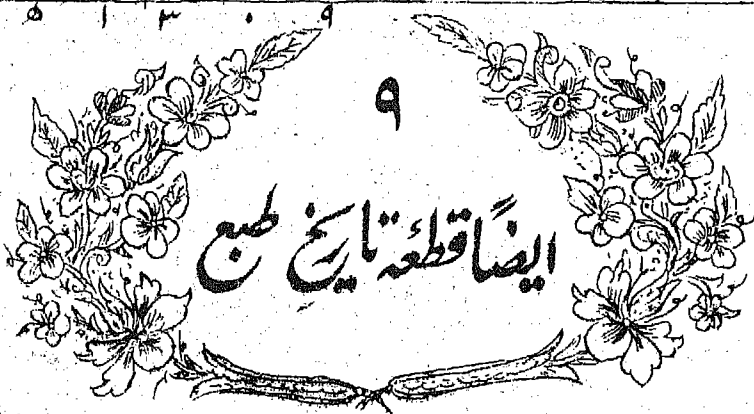 ۱۳۰۹ ه
۹
ایضاً قطعۂ تاریخِ طبع